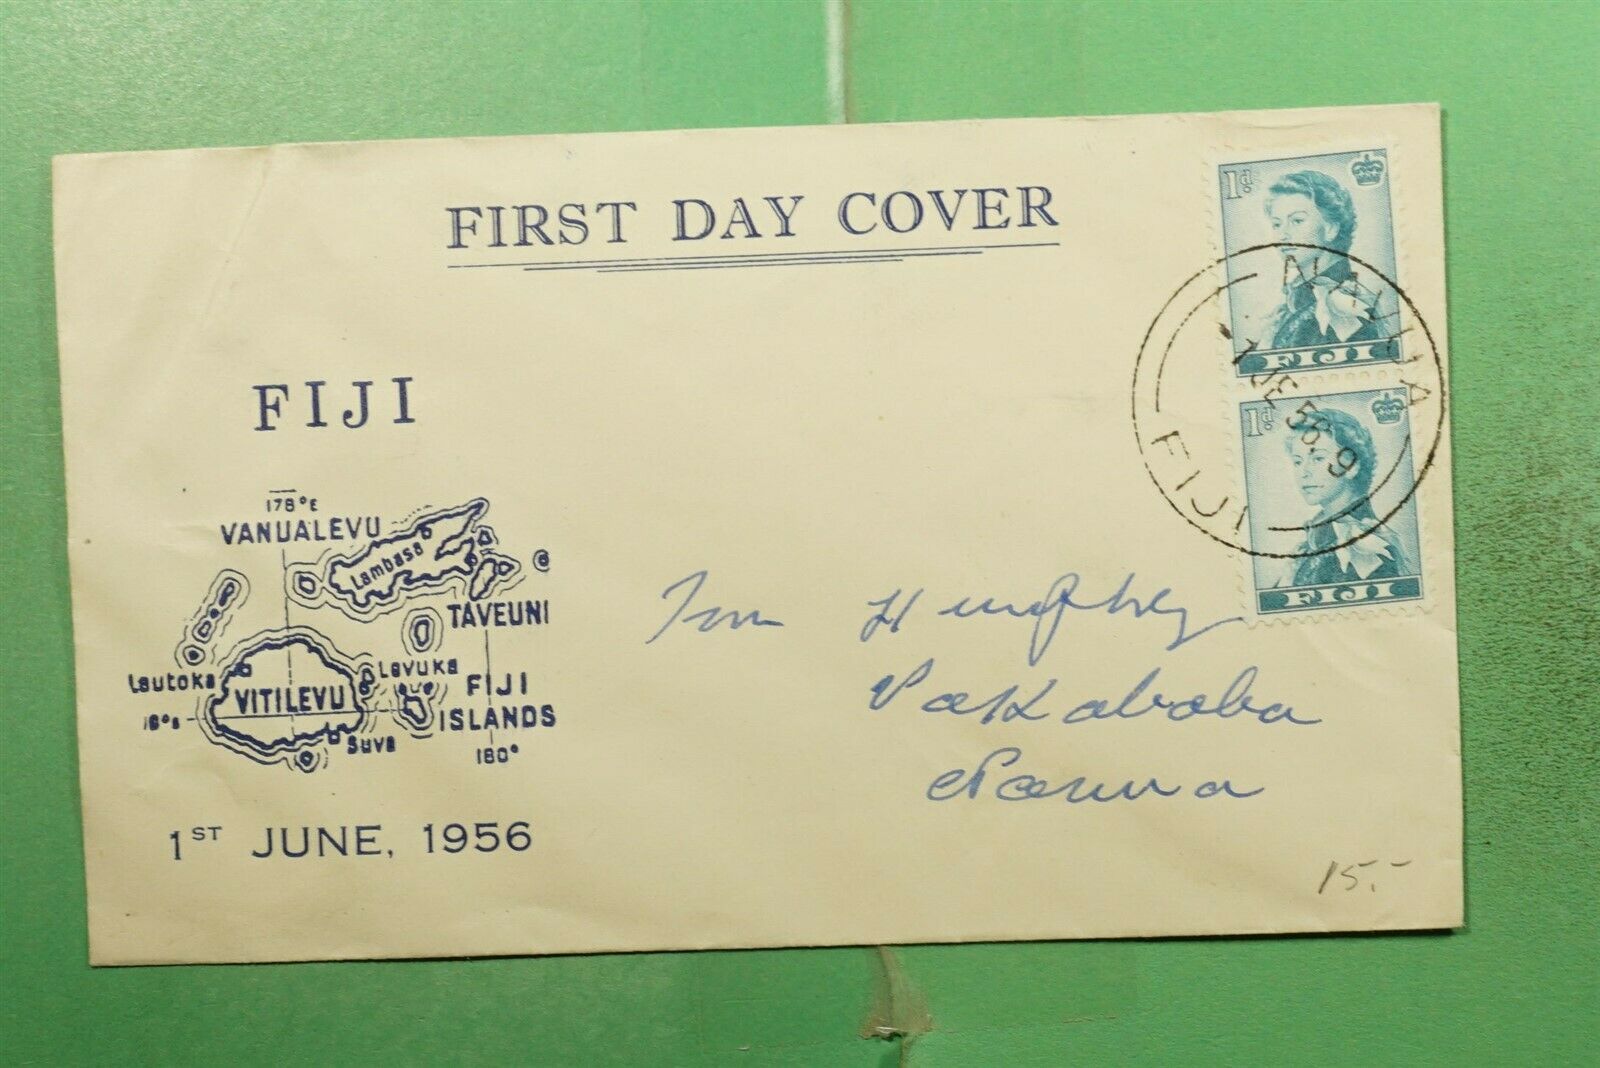 FIRST DAY COVER
1d.
FIJI
1d.
FIJI
NAVUA
1 JE 56. 9
FIJI
FIJI
178°E
VANUALEVU
Lambasa
TAVEUNI
Lautoka
VITILEVU
Levuka
FIJI
ISLANDS
18°S
Suva
180°
1ST JUNE, 1956
Vakababa
15.-